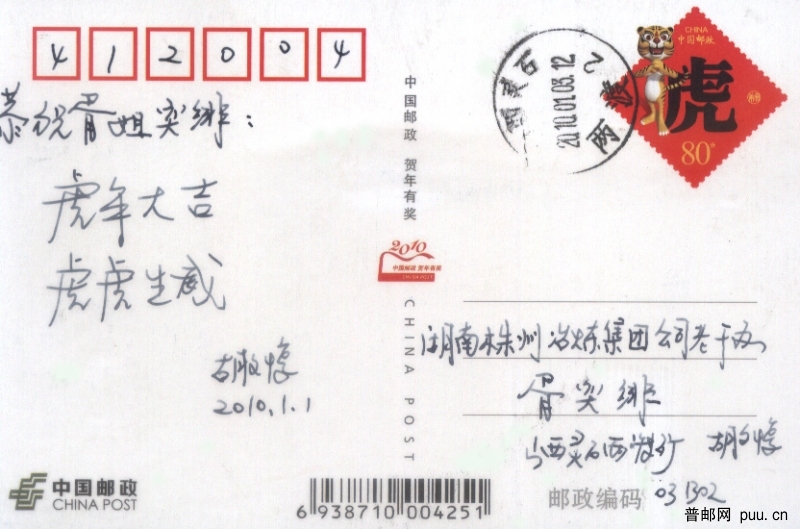 412004
恭祝胥姐奕绯：
虎年大吉
虎虎生威
胡敬惇
2010.1.1
中国邮政
CHINA POST
中国邮政 贺年有奖
2010
中国邮政 贺年有奖
CHINA POST
CHINA POST
山西灵石
2010.01.03.12
两渡
乙
CHINA
中国邮政
虎
80分
湖南株洲冶炼集团公司老干办
胥奕绯
山西灵石两渡
胡敬惇
邮政编码 031302
6 938710 004251
普邮网 puu.cn